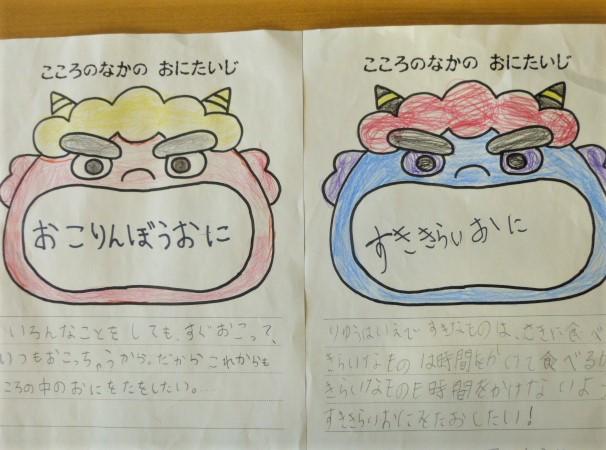 こころのなかの おにたいじ
おこりんぼうおに
いろんなことをしても、すぐおこって、
いつもおこっちゃうから。だから これからも
ころの中のおにをたをしたい。
こころのなかの おにたいじ
すききらいおに
りゆうはいえで すきなものは、さきに食べ
きらいなものは時間をかくて食べる
きらいなものも時間をかけないよ
すききらいおにをたおしたい!